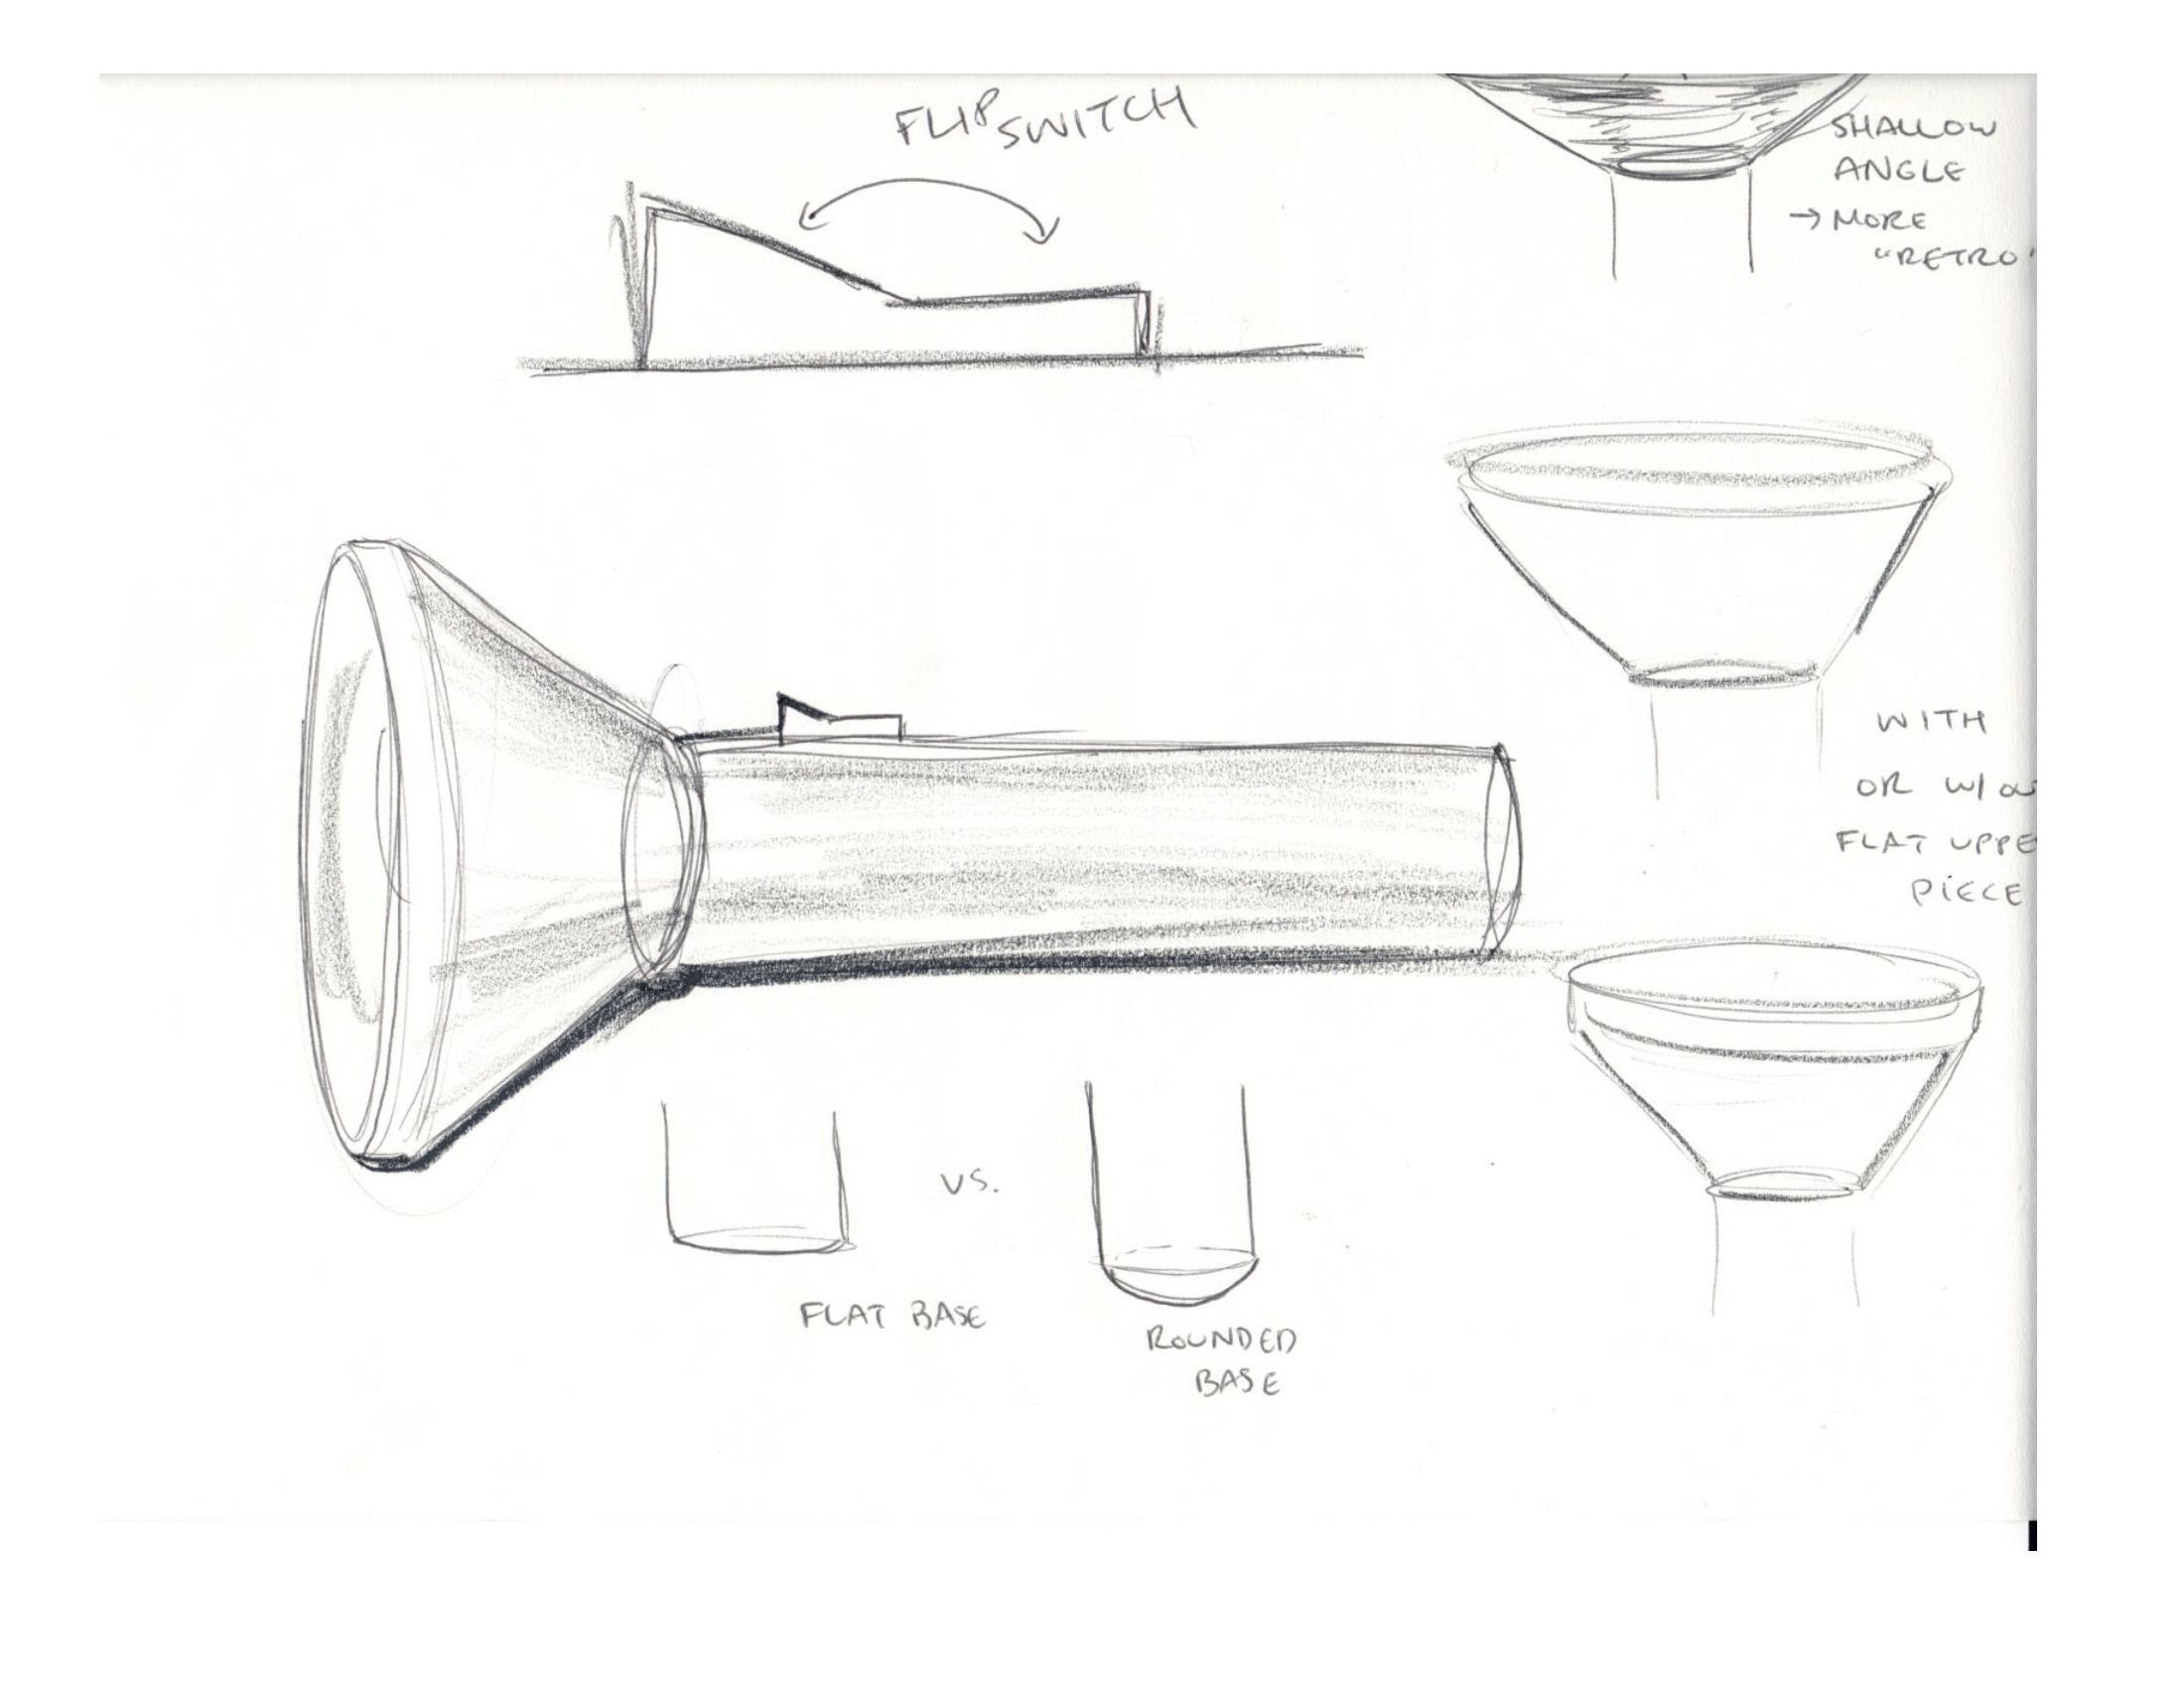 FLIP SWITCH
SHALLOW
ANGLE
→ MORE
"RETRO"
WITH
OR W/OU
FLAT UPPE
PIECE
VS.
FLAT BASE
ROUNDED
BASE